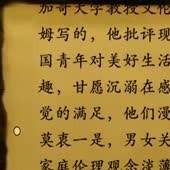 加哥大学教授艾伦
姆写的，他批评现
国青年对美好生活
趣，甘愿沉溺在感
觉的满足，他们漫
莫衷一是，男女关
家庭伦理观念淡薄